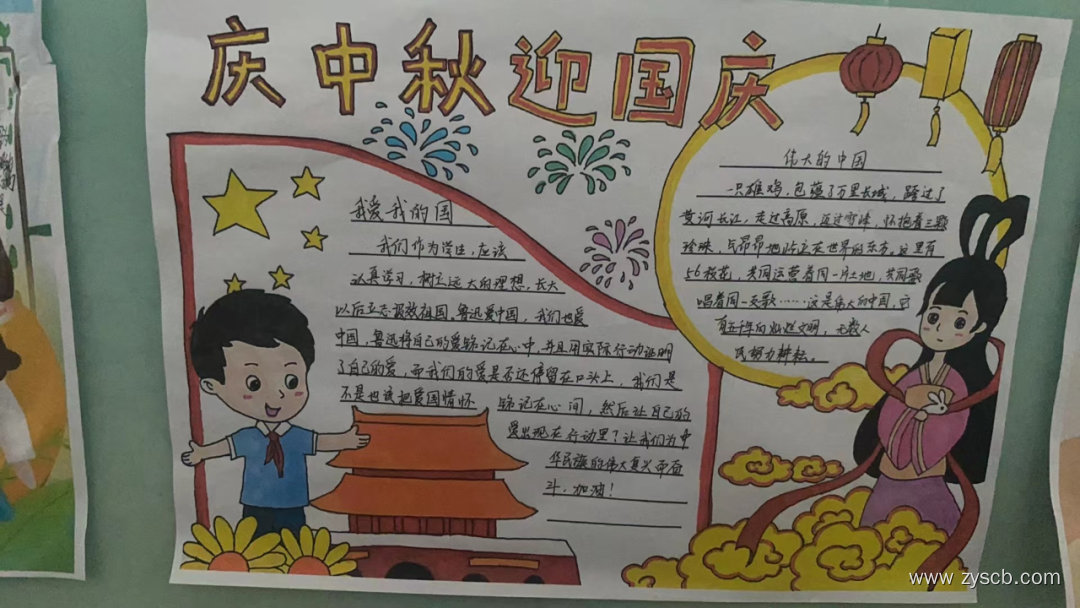 庆中秋迎国庆
我爱我的国
我们作为学生,应该
认真学习,树立远大的理想,长大
以后立志报效祖国。鲁迅爱中国,我们也爱
中国,鲁迅将自己的爱铭记在心中,并且用实际行动证明
了自己的爱,而我们的爱是否还停留在口头上,我们是
不是也该把爱国情怀 铭记在心间,然后让自己的
爱出现在行动里?让我们为中
华民族的伟大复兴而奋
斗,加油!
伟大的中国
一只雄鸡,包蕴了万里长城,跨过了
黄河长江,走过高原,迈过雪峰,怀抱着三颗
珍珠,气昂昂地屹立在世界的东方。这里有
56枝花,共同运营着同一片土地,共同歌
唱着同一支歌……这是伟大的中国,它
有五千年的灿烂文明,无数人
民努力耕耘。
www.zyscb.com